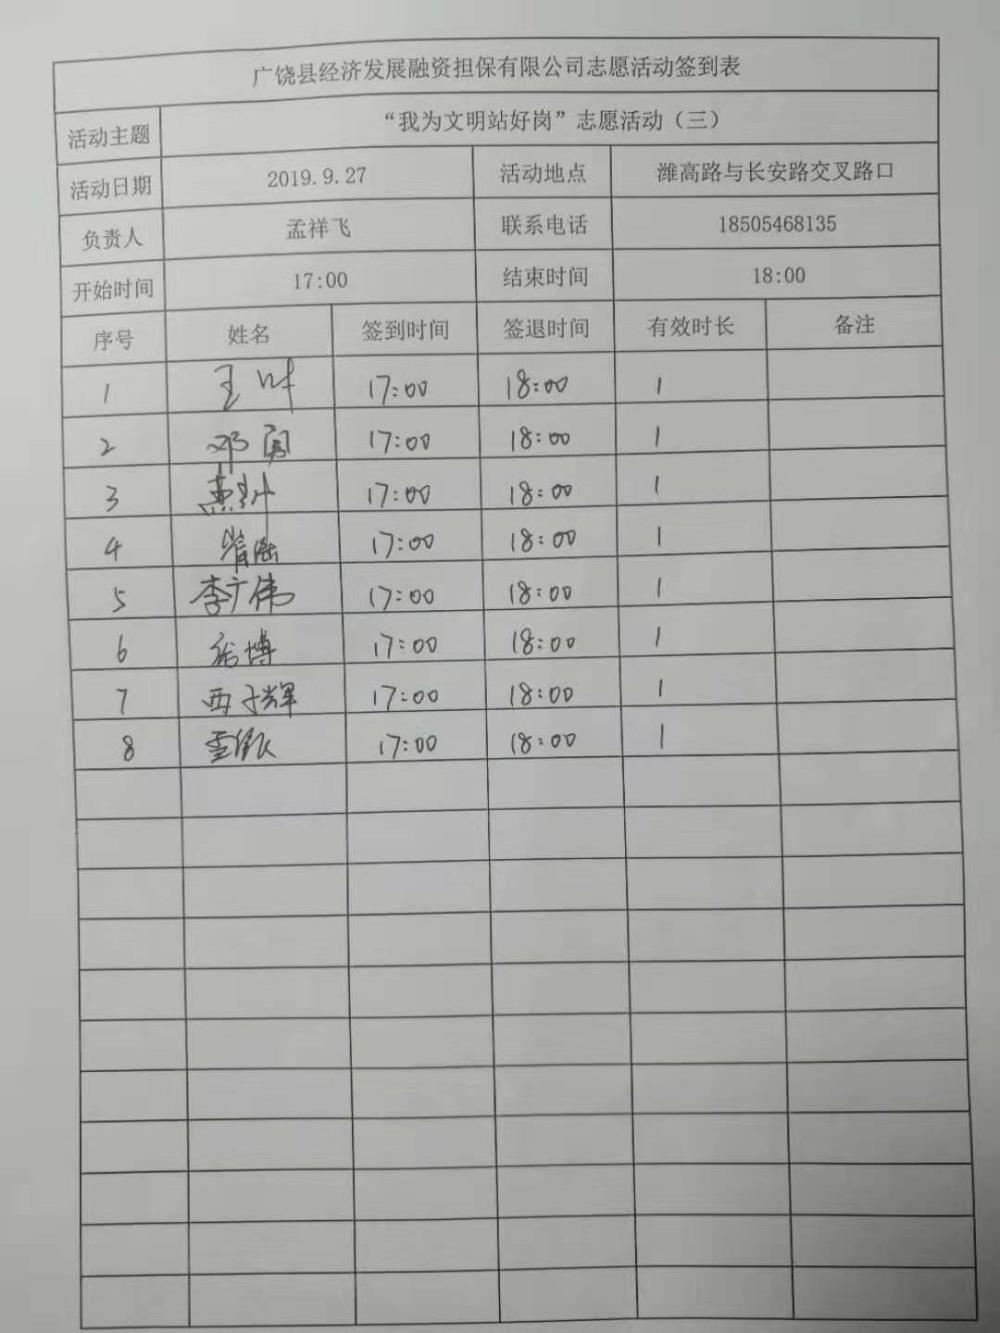 广饶县经济发展融资担保有限公司志愿活动签到表
活动主题 “我为文明站好岗”志愿活动（三）
活动日期 2019.9.27 活动地点 潍高路与长安路交叉路口
负责人 孟祥飞 联系电话 18505468135
开始时间 17:00 结束时间 18:00
序号 姓名 签到时间 签退时间 有效时长 备注
1 王叶 17:00 18:00 1
2 邓闰 17:00 18:00 1
3 17:00 18:00 1
4 17:00 18:00 1
5 李广伟 17:00 18:00 1
6 博 17:00 18:00 1
7 西子辉 17:00 18:00 1
8 17:00 18:00 1